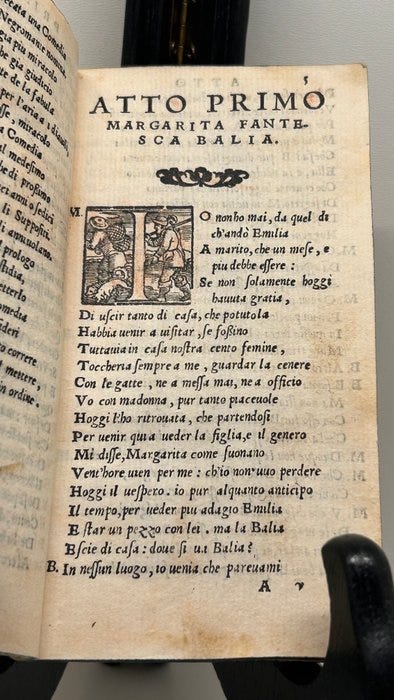 ccata una Comedia
Negromante nomina
gia piu miracolo
he gia giudicio
te de la fabula
per l'aria a i diauoli
sse, miracolo
a Comedia
al medesimo
be di prossimo
ci anni o sedici
li Suppositi
i annuolano.
l prologo
stidia,
etterlo
omedia
nderi
to correre
mettere,
in ordine.
5
ATTO PRIMO
MARGARITA FANTE-
SCA BALIA.
M. IO non ho mai, da quel di
ch'andò Emilia
A marito, che un mese, e
piu debbe essere:
Se non solamente hoggi
hauuta gratia,
Di uscir tanto di casa, che potuto la
Habbia uenir a uisitar, se foßino
Tuttauia in casa nostra cento femine,
Toccheria sempre a me, guardar la cenere
Con le gatte, ne a messa mai, ne a officio
Vo con madonna, pur tanto piaceuole
Hoggi l'ho ritrouata, che partendosi
Per uenir qui a ueder la figlia, e il genero
Mi disse, Margarita come suonano
Vent'hore uien per me: ch'io non uuo perdere
Hoggi il uespero. io pur alquanto anticipo
Il tempo, per ueder piu adagio Emilia
E star un pezzo con lei. ma la Balia
Escie di casa: doue si ua Balia?
B. In nessun luogo, io uenia che pareuami
A v